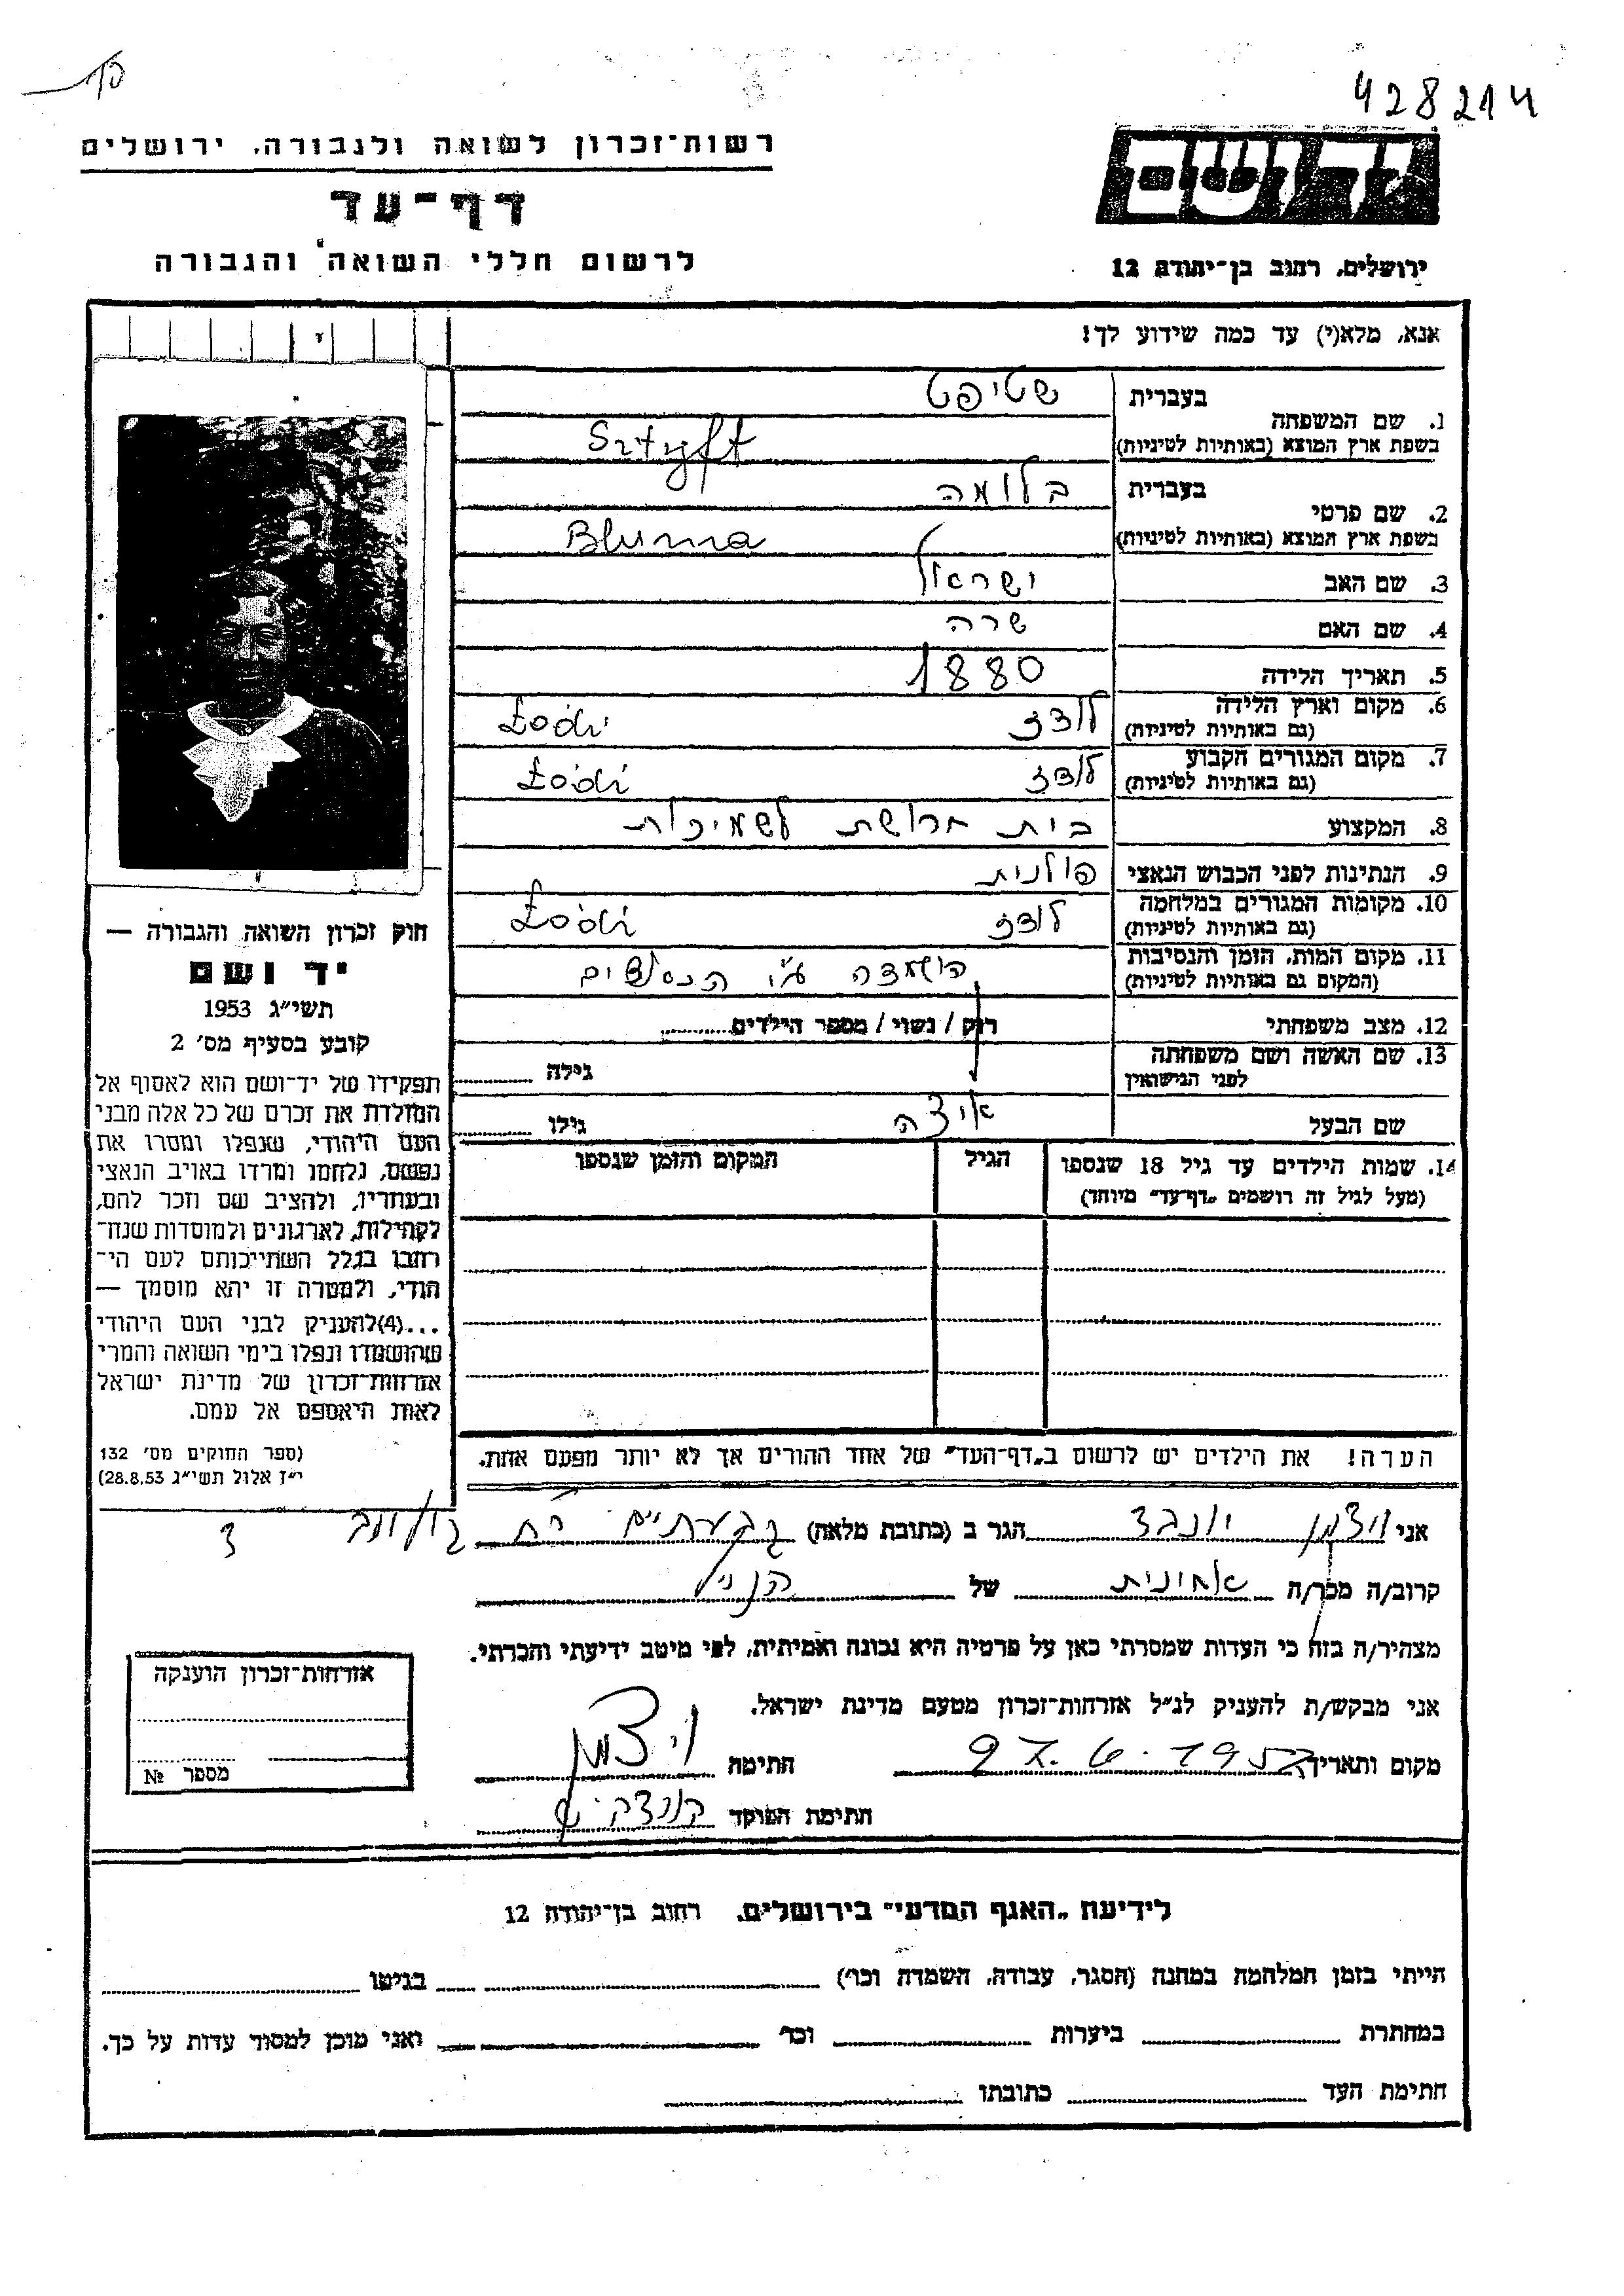 428214
רשות־זכרון לשואה ולגבורה, ירושלים
דף־עד
לרשום חללי השואה והגבורה
יד ושם
ירושלים, רחוב בן־יהודה 12
אנא, מלא(י) עד כמה שידוע לך!
1. שם המשפחה בעברית שטיפט
בשפת ארץ המוצא (באותיות לטיניות) Sztyft
2. שם פרטי בעברית בלומה
בשפת ארץ המוצא (באותיות לטיניות) Bluma
3. שם האב ישראל
4. שם האם שרה
5. תאריך הלידה 1880
6. מקום וארץ הלידה (גם באותיות לטיניות) לודז Łódź
7. מקום המגורים הקבוע (גם באותיות לטיניות) לודז Łódź
8. המקצוע בית חרושת לשמיכות
9. הנתינות לפני הכבוש הנאצי פולנית
10. מקומות המגורים במלחמה (גם באותיות לטיניות) לודז Łódź
11. מקום המות, הזמן והנסיבות (המקום גם באותיות לטיניות) הושמדה ע"י הנאצים
12. מצב משפחתי רוק / נשוי / מספר הילדים
13. שם האשה ושם משפחתה לפני הנישואין גילה
שם הבעל גילו
14. שמות הילדים עד גיל 18 שנספו הגיל המקום והזמן שנספו
(מעל לגיל זה רושמים „דף־עד” מיוחד)
חוק זכרון השואה והגבורה —
יד ושם
תשי״ג 1953
קובע בסעיף מס׳ 2
תפקידו של יד־ושם הוא לאסוף אל
המולדת את זכרם של כל אלה מבני
העם היהודי, שנפלו ומסרו את
נפשם, נלחמו ומרדו באויב הנאצי
ובעוזריו, ולהציב שם וזכר להם,
לקהילות, לארגונים ולמוסדות שנח־
רבו בגלל השתייכותם לעם הי־
הודי, ולמטרה זו יהא מוסמך —
...(4)להעניק לבני העם היהודי
שהושמדו ונפלו בימי השואה והמרי
אזרחות־זכרון של מדינת ישראל
לאות היאספם אל עמם.
(ספר החוקים מס׳ 132
י״ז אלול תשי״ג 28.8.53)
הערה! את הילדים יש לרשום ב„דף־העד” של אחד ההורים אך לא יותר מפעם אחת.
אני ויצמן הגר ב (כתובת מלאה) גבעתיים רח 3
קרוב/ה מכר/ה אחינית של הנ"ל
מצהיר/ה בזה כי העדות שמסרתי כאן על פרטיה היא נכונה ואמיתית, לפי מיטב ידיעתי והכרתי.
אני מבקש/ת להעניק לנ״ל אזרחות־זכרון מטעם מדינת ישראל.
מקום ותאריך חתימה ויצמן
חתימת הפוקד
אזרחות־זכרון הוענקה
מספר №
לידיעת „האגף המדעי” בירושלים, רחוב בן־יהודה 12
הייתי בזמן המלחמה במחנה (הסגר, עבודה, השמדה וכו׳) בגיטו
במחתרת ביערות וכו׳ ואני מוכן למסור עדות על כך.
חתימת העד כתובתו